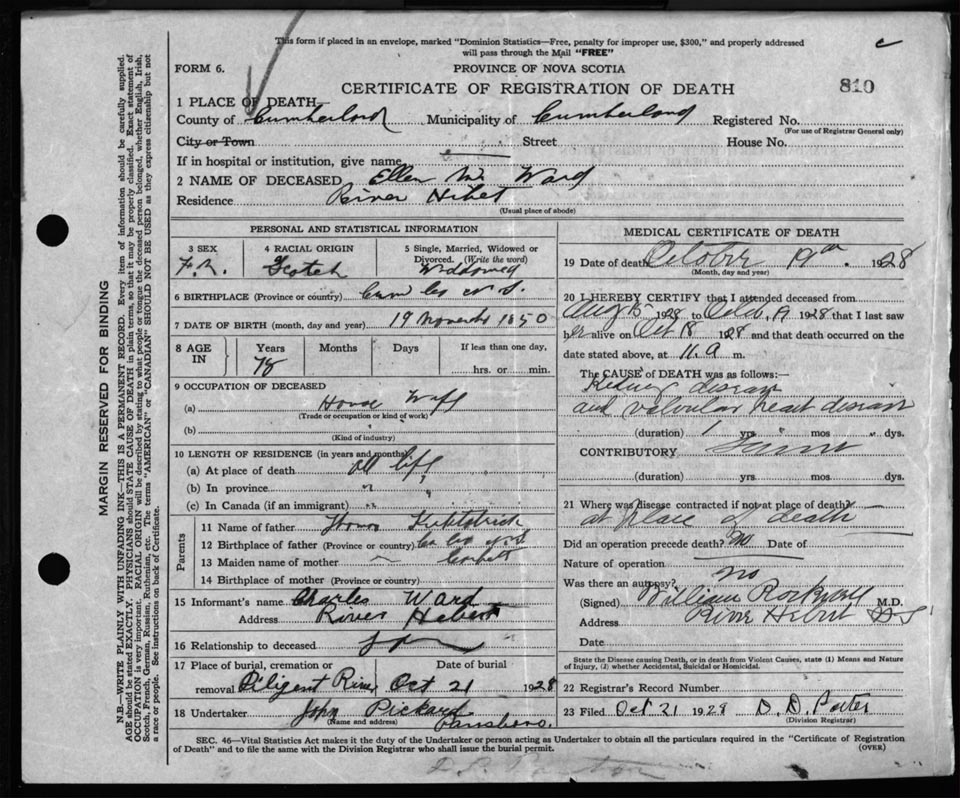 This form if placed in an envelope, marked "Dominion Statistics—Free, penalty for improper use, $300," and properly addressed
will pass through the Mail "FREE"
FORM 6.
PROVINCE OF NOVA SCOTIA
CERTIFICATE OF REGISTRATION OF DEATH
810
1 PLACE OF DEATH
County of Cumberland Municipality of Cumberland Registered No.
(For use of Registrar General only)
City or Town Street House No.
If in hospital or institution, give name
2 NAME OF DECEASED Ellen M. Ward
Residence River Hebet
(Usual place of abode)
PERSONAL AND STATISTICAL INFORMATION
3 SEX 4 RACIAL ORIGIN 5 Single, Married, Widowed or
Divorced. (Write the word)
Scotch Widdowed
6 BIRTHPLACE (Province or country) N S.
7 DATE OF BIRTH (month, day and year) 19 November 1850
8 AGE IN Years Months Days If less than one day,
78 hrs. or min.
9 OCCUPATION OF DECEASED
(a) House Wife
(Trade or occupation or kind of work)
(b)
(Kind of industry)
10 LENGTH OF RESIDENCE (in years and months)
(a) At place of death all life
(b) In province
(c) In Canada (if an immigrant)
Parents
11 Name of father Kirkpatrick
12 Birthplace of father (Province or country)
13 Maiden name of mother Corbett
14 Birthplace of mother (Province or country)
15 Informant's name Charles Ward
Address River Hebert
16 Relationship to deceased son
17 Place of burial, cremation or removal Date of burial
Diligent River Oct 21 1928
18 Undertaker John Pickard
(Name and address) Parrsboro.
MEDICAL CERTIFICATE OF DEATH
19 Date of death October 19th. 1928
(Month, day and year)
20 I HEREBY CERTIFY that I attended deceased from
Aug 15 1928 to Octo. 19 1928 that I last saw
her alive on Oct 18 1928 and that death occurred on the
date stated above, at 11.a m.
The CAUSE of DEATH was as follows:—
Kidney disease
and valvular heart disease
(duration) 1 yrs mos dys.
CONTRIBUTORY
(duration) yrs mos dys.
21 Where was disease contracted if not at place of death?
at place of death
Did an operation precede death? No Date of
Nature of operation
Was there an autopsy? no
(Signed) William Rockwell M.D.
Address River Hebert NS
Date
State the Disease causing Death, or in death from Violent Causes, state (1) Means and Nature
of Injury, (2) whether Accidental, Suicidal or Homicidal.
22 Registrar's Record Number
23 Filed Oct 21 1928 D. D. Porter
(Division Registrar)
SEC. 46—Vital Statistics Act makes it the duty of the Undertaker or person acting as Undertaker to obtain all the particulars required in the "Certificate of Registration
of Death" and to file the same with the Division Registrar who shall issue the burial permit.
(OVER)
MARGIN RESERVED FOR BINDING
N.B.—WRITE PLAINLY WITH UNFADING INK—THIS IS A PERMANENT RECORD. Every item of information should be carefully supplied.
AGE should be stated EXACTLY. PHYSICIANS should STATE CAUSE OF DEATH in plain terms, so that it may be properly classified. Exact statement of
OCCUPATION is very important. RACIAL ORIGIN will be described by stating to what people or tongue the deceased person belonged, whether English, Irish,
Scotch, French, German, Russian, Ruthenian, etc. The terms "AMERICAN" or "CANADIAN" SHOULD NOT BE USED as they express citizenship but not
a race or people. See instructions on back of Certificate.